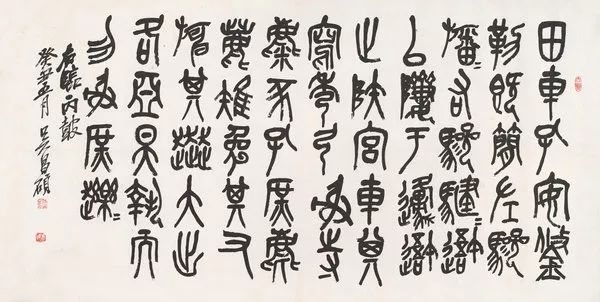 田車孔安鋚
勒既簡左驂
旛〻右驂騝〻䢔
以隮于邍䢔
止陜宮車其
寫秀弓寺
麋豕孔庶麀
鹿雉兔其又
其大出
各亞昊執而
勿射庶趯〻
右臨丙鼓
癸丑五月 吳昌碩